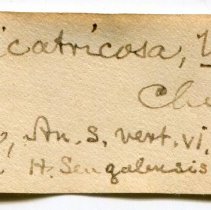 icatricosa,
Che
An. S. vert. vi.
H. Sengalensis